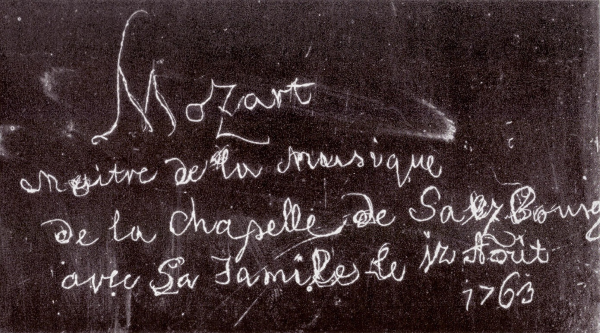 Mozart
Maitre de la Musique
de la Chapelle de Salzbourg
avec Sa Famile le 12 Août
1763